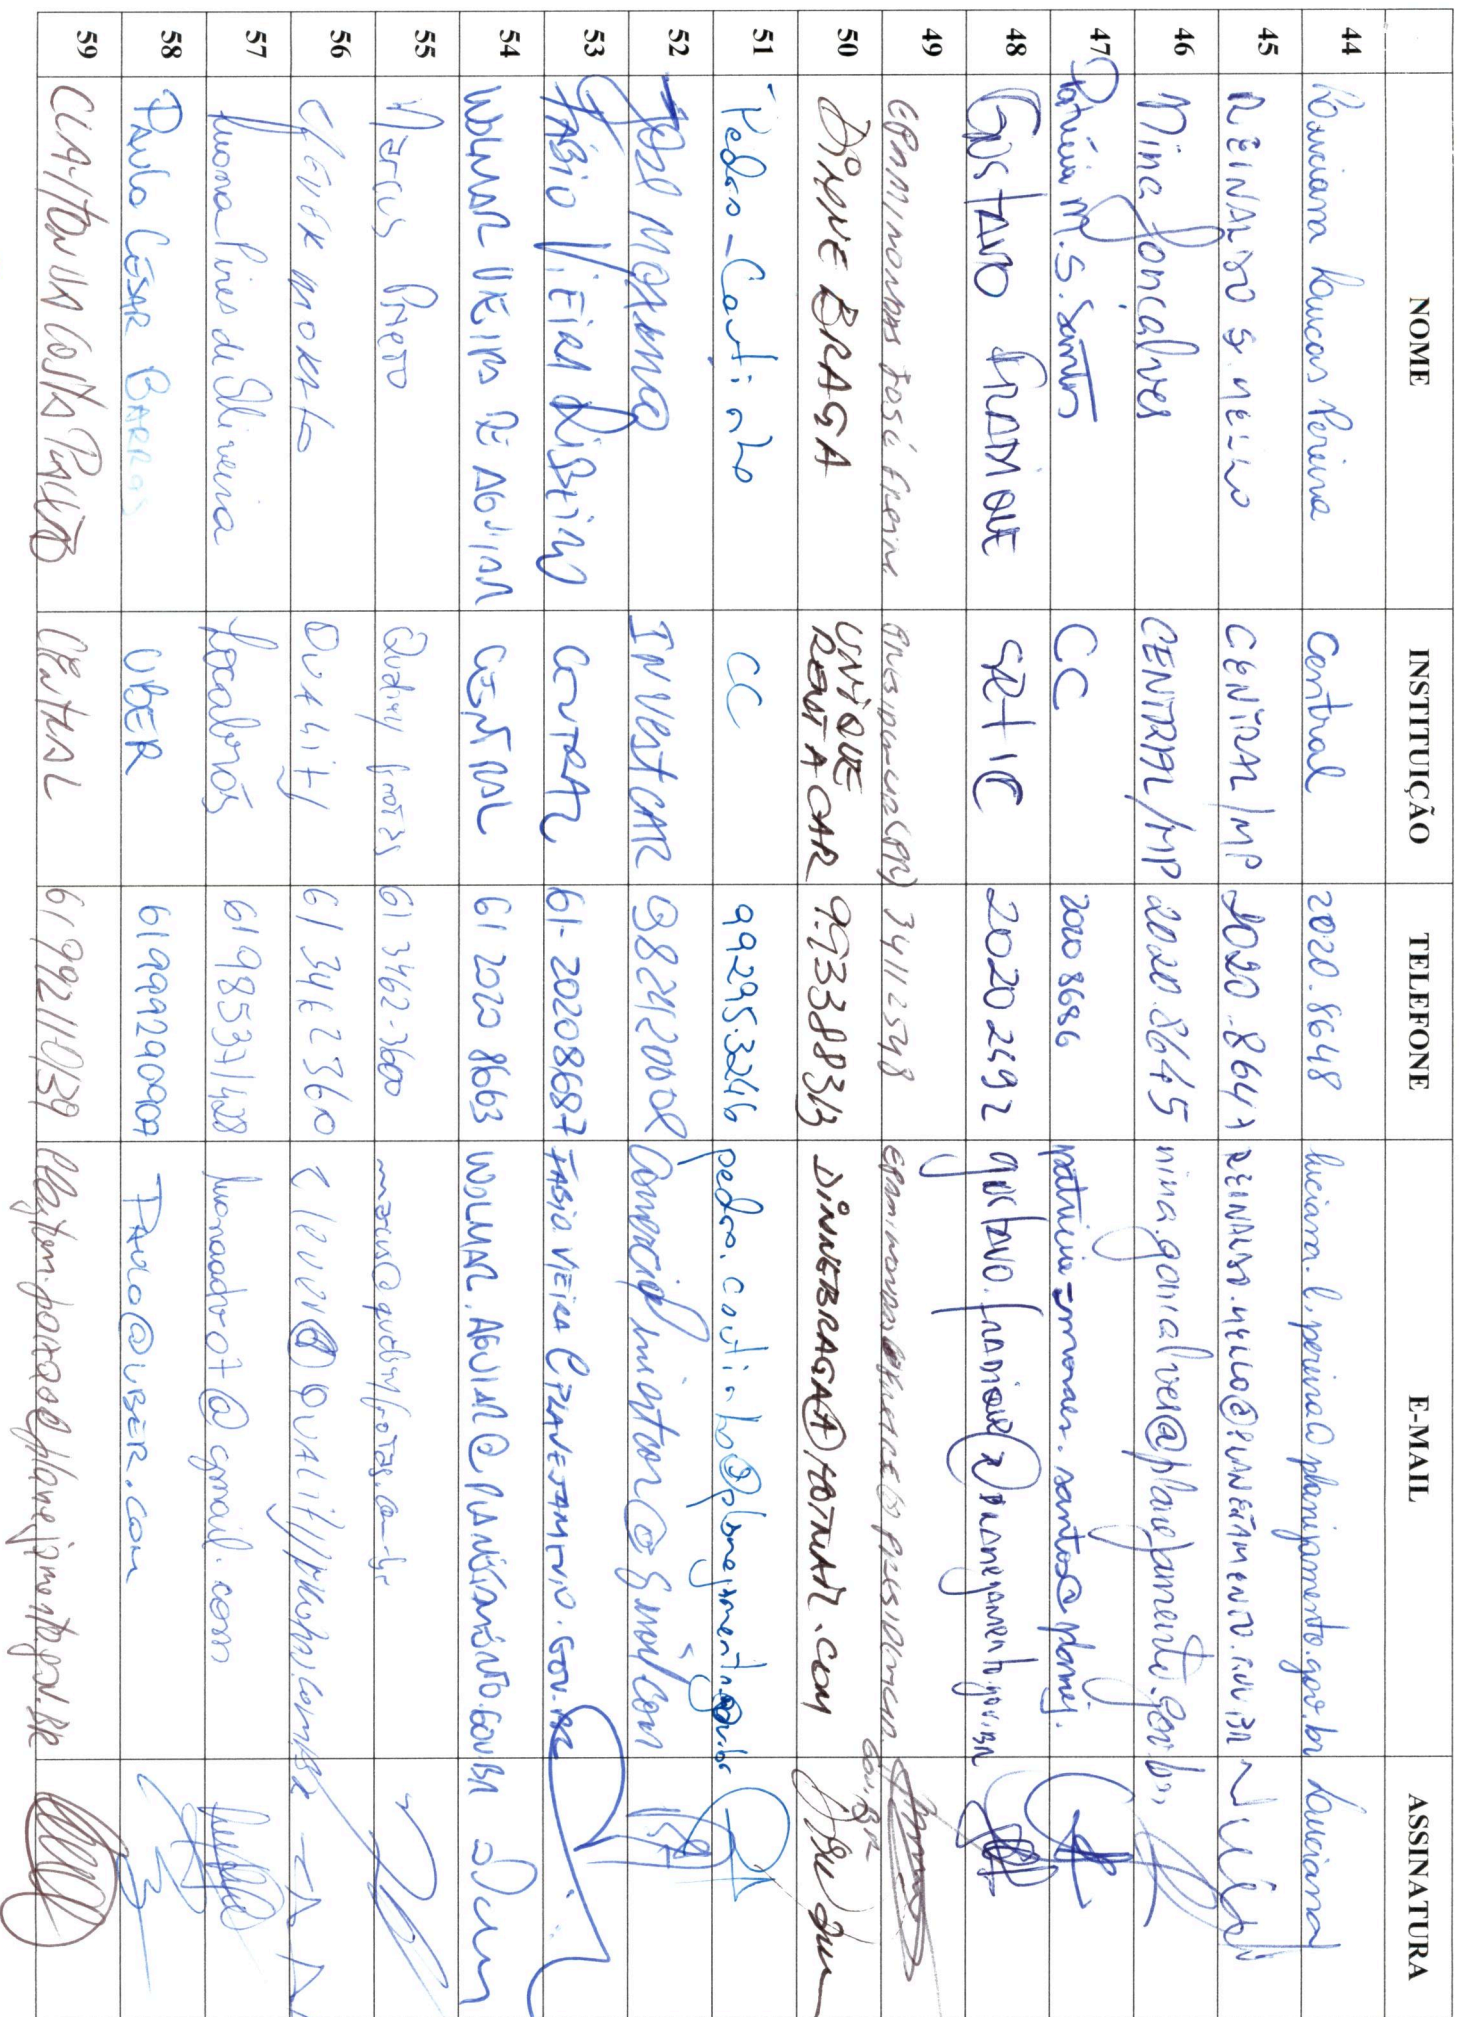 NOME INSTITUIÇÃO TELEFONE E-MAIL ASSINATURA
44 Luciana Loucas Pereira Central 2020.8648 luciana.l.pereira@planejamento.gov.br Luciana
45 REINALDO S. MELLO CENTRAL/MP 2020.8647 REINALDO.MELLO@PLANEJAMENTO.GOV.BR
46 Nina Gonçalves CENTRAL/MP 2020.8645 nina.goncalves@planejamento.gov.br
47 Patrícia M. S. Santos CC 2020 8686 patricia-moraes.santos@planej.
48 GUSTAVO FRADIQUE SETIC 2020 2492 gustavo.fradique@planejamento.gov.br
49 EPAMINONDAS JOSÉ 3411 2548 GOV.BR
50 DINNE BRAGA UNIQUE RENT A CAR 9.93388313 DINNEBRAGA@HOTMAIL.COM
51 Pedro Coutinho CC 99295.3246 pedro.coutinho@planejamento.gov.br
52 INVESTCAR 982420002
53 FÁBIO VIEIRA RIBEIRO CENTRAL 61-20208687 FABIO.VIEIRA@PLANEJAMENTO.GOV.BR
54 WOLMAR VIEIRA DE AGUIAR CENTRAL 61 2020 8663 WOLMAR.AGUIAR@PLANEJAMENTO.GOV.BR
55 Marcus Prieto Quality frotas 61 3462-3600 marcus@qualityfrotas.com.br
56 Quality 61 34623600
57 Luana Pires de Oliveira Localvas 61985371428 luanaadv07@gmail.com
58 PAULO CÉSAR BARROS UBER 61999290907 PAULO@UBER.COM
59 CLAYTON DA COSTA PAIXÃO CENTRAL 61992110139 clayton.paixao@planejamento.gov.br